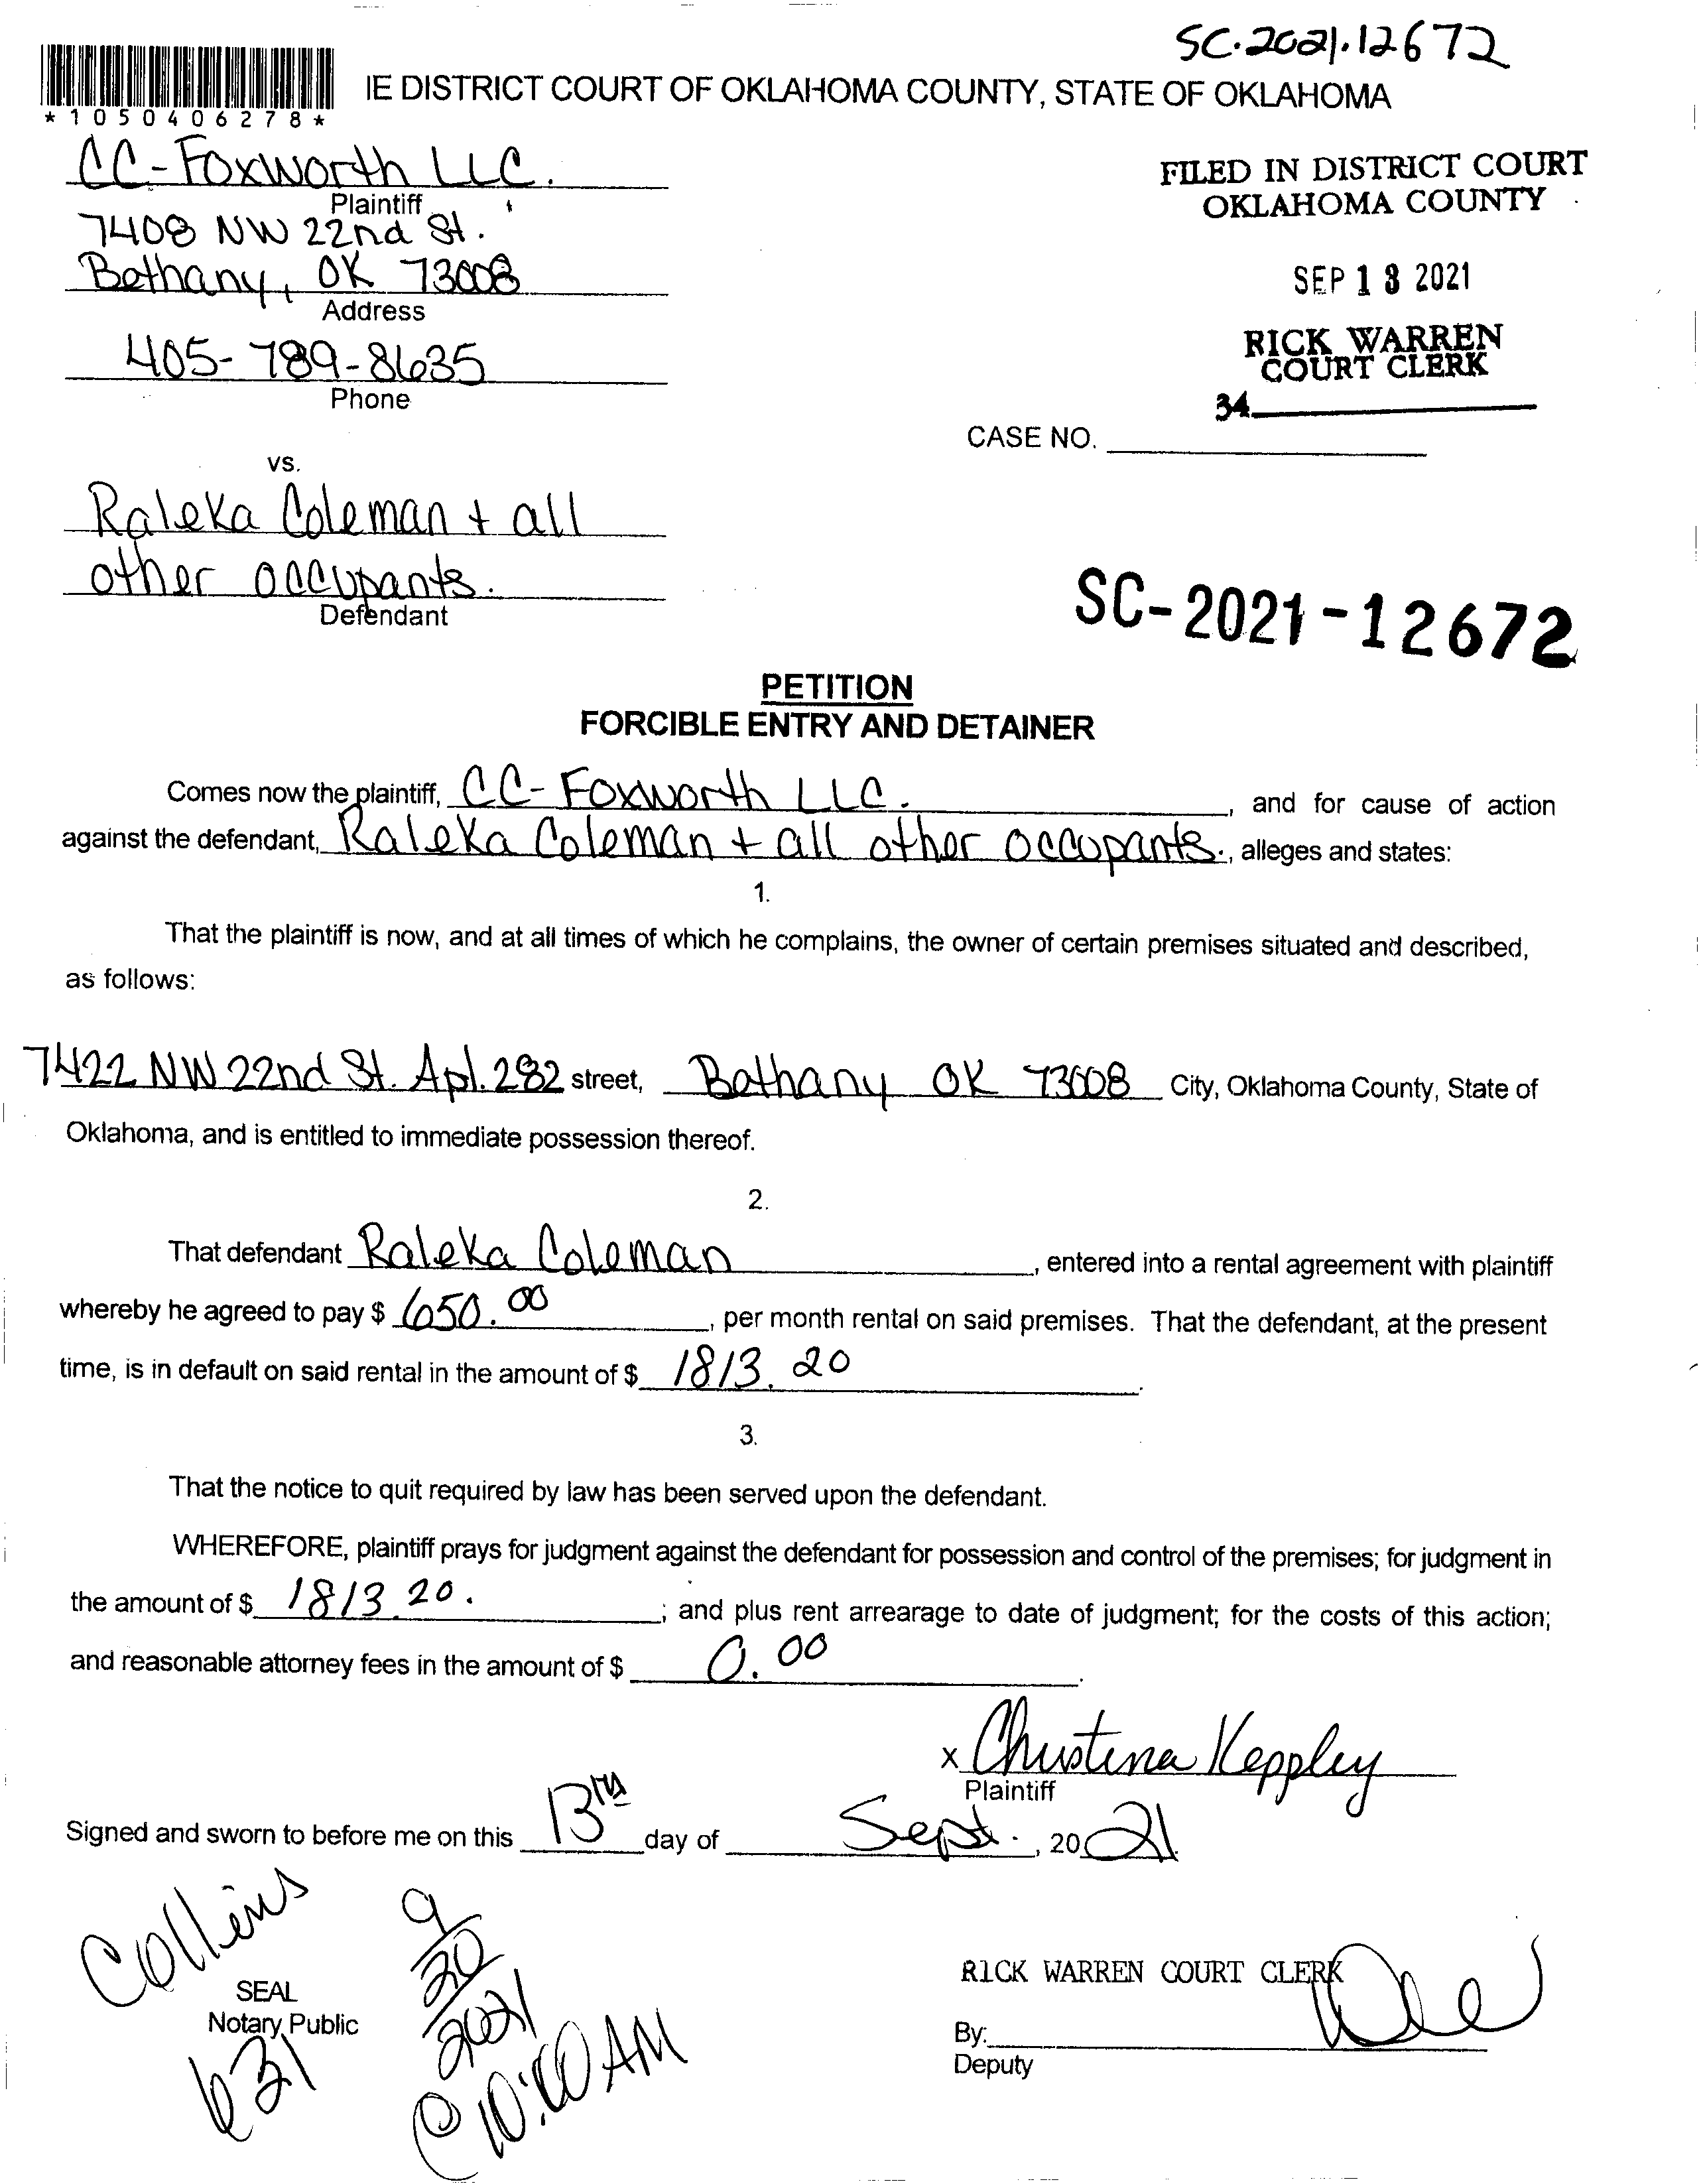 SC.2021.12672
*1050406278*
IE DISTRICT COURT OF OKLAHOMA COUNTY, STATE OF OKLAHOMA
CC-Foxworth LLC.
Plaintiff
7408 NW 22nd St.
Bethany, OK 73008
Address
405-789-8635
Phone
FILED IN DISTRICT COURT
OKLAHOMA COUNTY
SEP 13 2021
RICK WARREN
COURT CLERK
34
CASE NO.
vs.
Raleka Coleman + all
other occupants.
Defendant
SC-2021-12672
PETITION
FORCIBLE ENTRY AND DETAINER
Comes now the plaintiff, CC-Foxworth LLC. , and for cause of action
against the defendant, Raleka Coleman + all other occupants., alleges and states:
1.
That the plaintiff is now, and at all times of which he complains, the owner of certain premises situated and described,
as follows:
7422 NW 22nd St. Apt. 282 street, Bethany OK 73008 City, Oklahoma County, State of
Oklahoma, and is entitled to immediate possession thereof.
2.
That defendant Raleka Coleman , entered into a rental agreement with plaintiff
whereby he agreed to pay $ 650.00 , per month rental on said premises. That the defendant, at the present
time, is in default on said rental in the amount of $ 1813.20 .
3.
That the notice to quit required by law has been served upon the defendant.
WHEREFORE, plaintiff prays for judgment against the defendant for possession and control of the premises; for judgment in
the amount of $ 1813.20. ; and plus rent arrearage to date of judgment; for the costs of this action;
and reasonable attorney fees in the amount of $ 0.00 .
x Christina Keppley
Plaintiff
Signed and sworn to before me on this 13th day of Sept. , 2021
Collins
SEAL
Notary Public
631
9/20/2021
@ 10:00 AM
RICK WARREN COURT CLERK
By:
Deputy